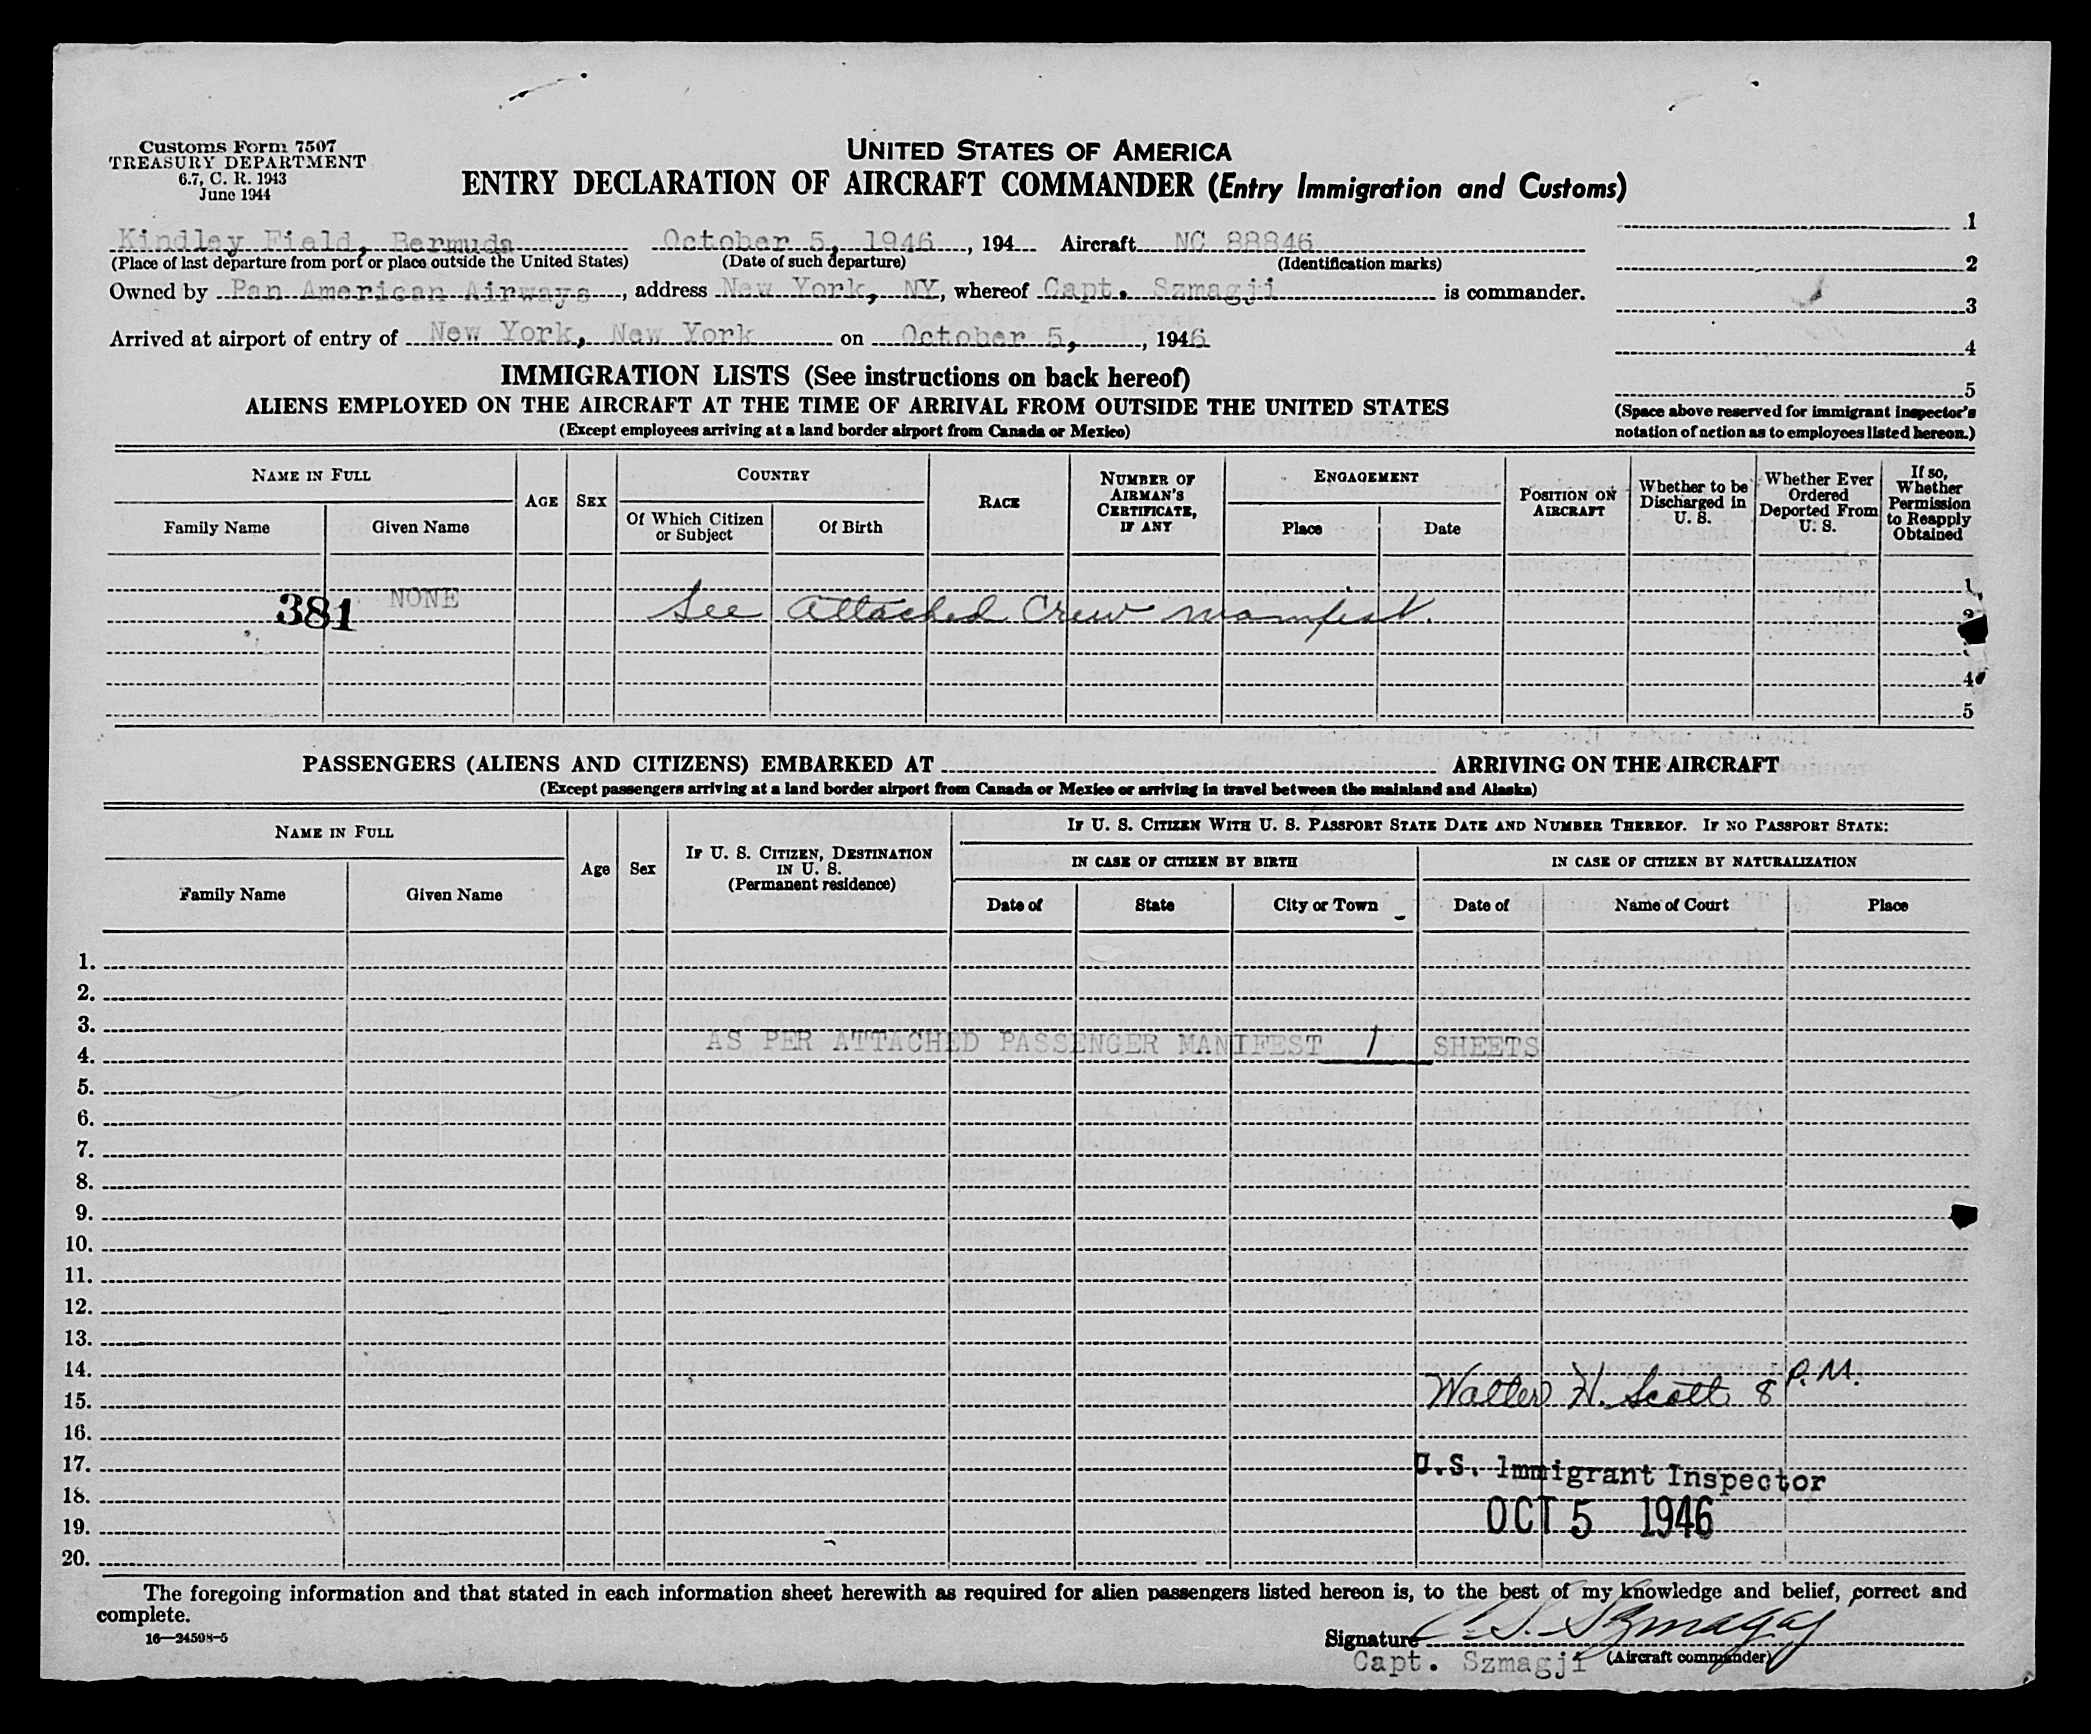 Customs Form 7507
TREASURY DEPARTMENT
6.7, C. R. 1943
June 1944
UNITED STATES OF AMERICA
ENTRY DECLARATION OF AIRCRAFT COMMANDER (Entry Immigration and Customs)
Kindley Field, Bermuda October 5, 1946, 194 Aircraft NC 88846
(Place of last departure from port or place outside the United States) (Date of such departure) (Identification marks)
Owned by Pan American Airways, address New York, NY, whereof Capt. Szmagji is commander.
Arrived at airport of entry of New York, New York on October 5, 1946
1
2
3
4
5
(Space above reserved for immigrant inspector's
notation of action as to employees listed hereon.)
IMMIGRATION LISTS (See instructions on back hereof)
ALIENS EMPLOYED ON THE AIRCRAFT AT THE TIME OF ARRIVAL FROM OUTSIDE THE UNITED STATES
(Except employees arriving at a land border airport from Canada or Mexico)
NAME IN FULL
Family Name Given Name
AGE
SEX
COUNTRY
Of Which Citizen or Subject
Of Birth
RACE
NUMBER OF AIRMAN'S CERTIFICATE, IF ANY
ENGAGEMENT
Place Date
POSITION ON AIRCRAFT
Whether to be Discharged in U. S.
Whether Ever Ordered Deported From U. S.
If so, Whether Permission to Reapply Obtained
1
381 NONE See Attached Crew manifest. 2
4
5
PASSENGERS (ALIENS AND CITIZENS) EMBARKED AT ARRIVING ON THE AIRCRAFT
(Except passengers arriving at a land border airport from Canada or Mexico or arriving in travel between the mainland and Alaska)
NAME IN FULL
Family Name Given Name
Age
Sex
IF U. S. CITIZEN, DESTINATION IN U. S. (Permanent residence)
IF U. S. CITIZEN WITH U. S. PASSPORT STATE DATE AND NUMBER THEREOF. IF NO PASSPORT STATE:
IN CASE OF CITIZEN BY BIRTH IN CASE OF CITIZEN BY NATURALIZATION
Date of State City or Town Date of Name of Court Place
1.
2.
3.
AS PER ATTACHED PASSENGER MANIFEST 1 SHEETS
4.
5.
6.
7.
8.
9.
10.
11.
12.
13.
14.
15. Walter H. Scott 8 P.M.
16.
17. U.S. Immigrant Inspector
18.
19. OCT 5 1946
20.
The foregoing information and that stated in each information sheet herewith as required for alien passengers listed hereon is, to the best of my knowledge and belief, correct and
complete.
16—24598-5
Signature C. S. Szmagaj
Capt. Szmagji (Aircraft commander)